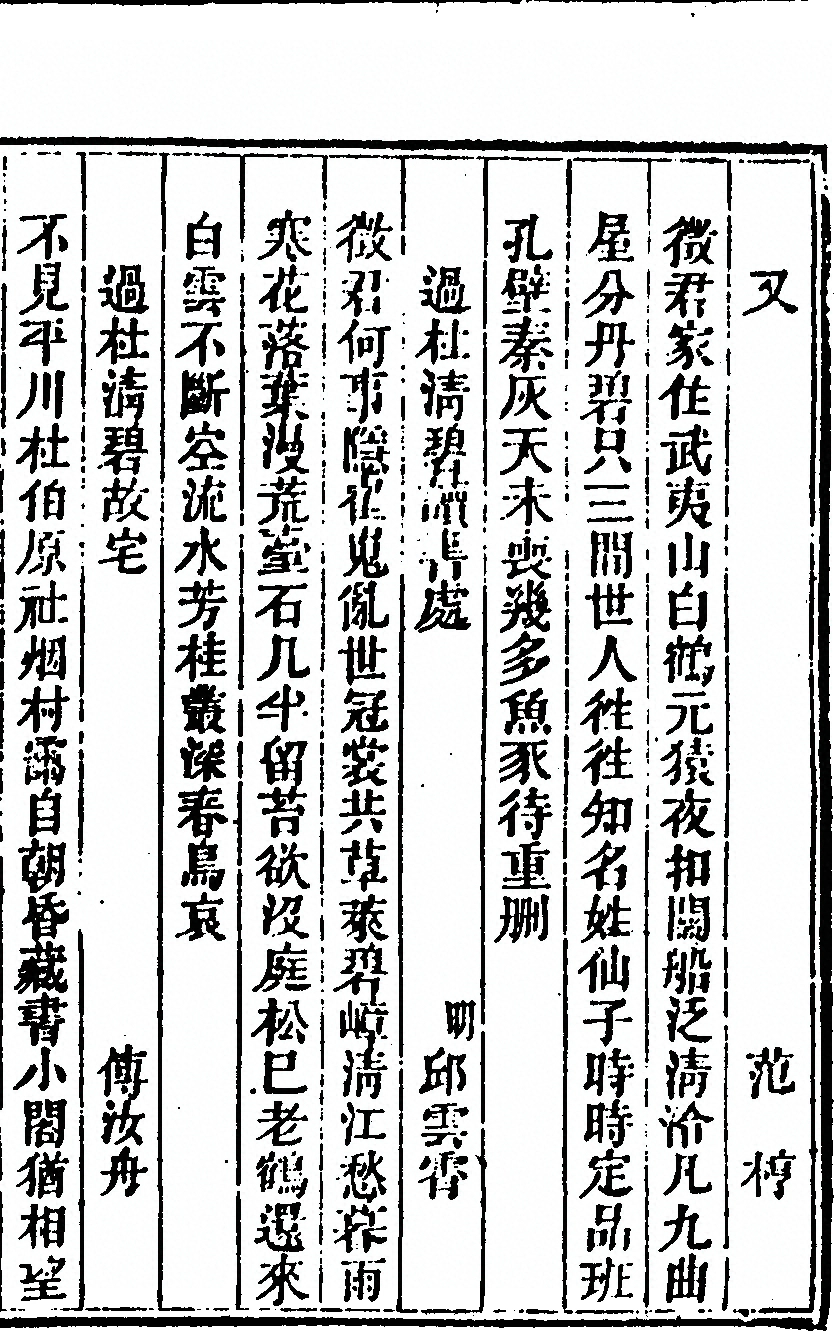 又 范梈
微君家住武夷山白鶴元猿夜扣關船泛清泠凡九曲
屋分丹碧只三間世人徃徃知名姓仙子時時定品班
孔壁秦灰天未喪幾多魚豕待重刪
過杜清碧讀書處 明邱雲霄
微君何事隱崔嵬亂世冠裳共草萊碧嶂清江愁暮雨
寒花落葉漫荒臺石几半留苔欲沒庭松巳老鶴還來
白雲不斷空流水芳桂叢深春鳥哀
過杜清碧故宅 傅汝舟
不見平川杜伯原社烟村雨自朝昏藏書小閣猶相望